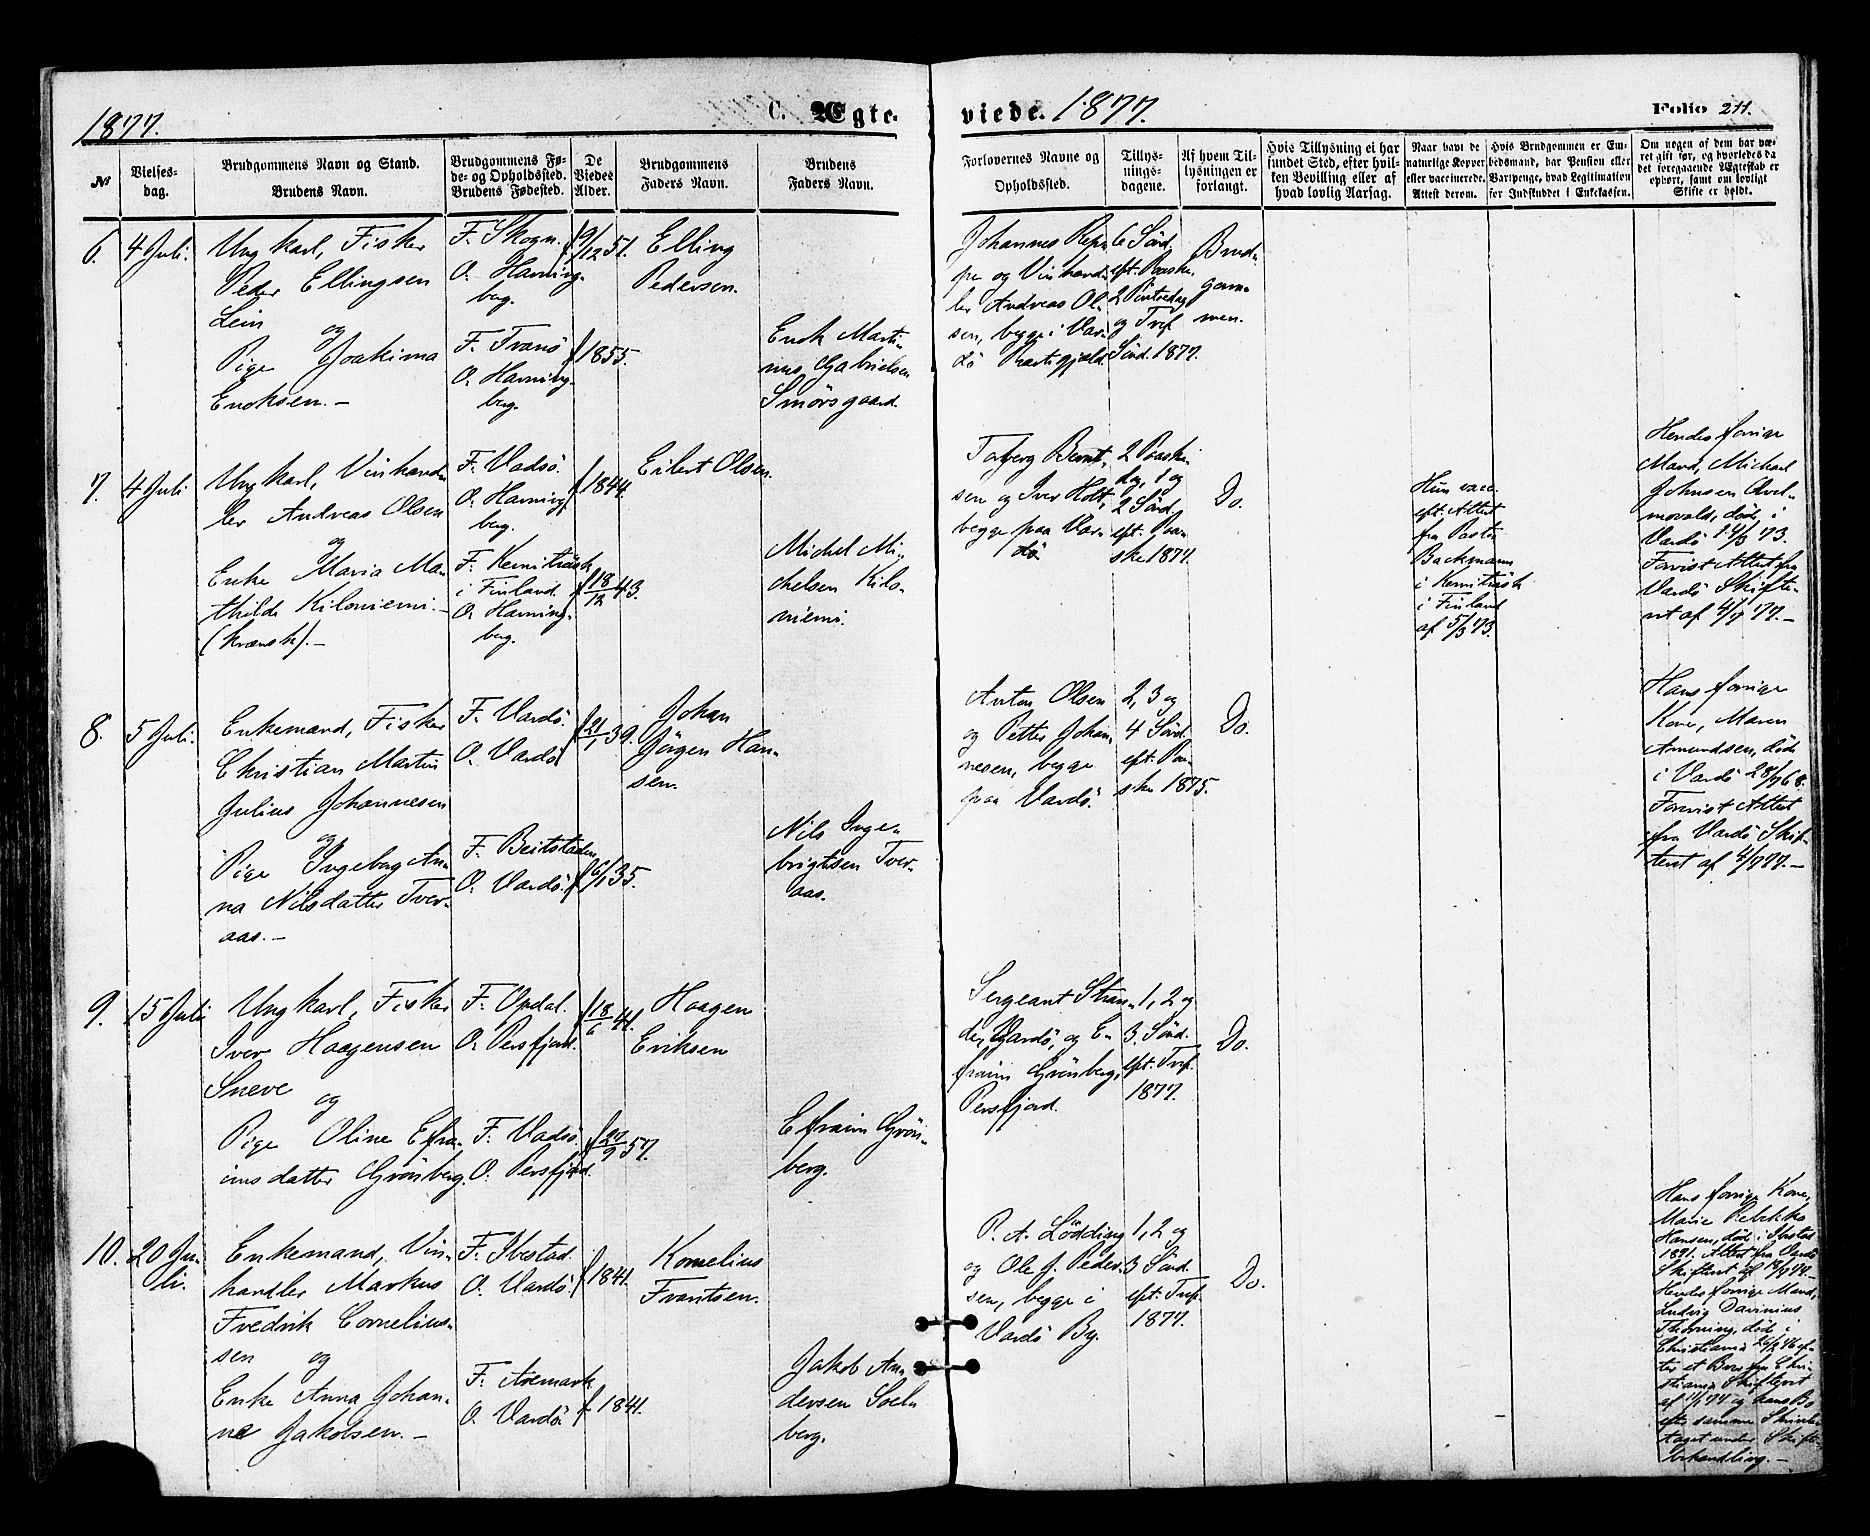 1877.
C. Ægte-
viede. 1877.
Folio 211.
№
Vielses-
dag.
Brudgommens Navn og Stand.
Brudens Navn.
Brudgommens Fø-
de- og Opholdssted.
Brudens Fødested.
De
Viedes
Alder.
Brudgommens
Faders Navn.
Brudens
Faders Navn.
Forlovernes Navne og
Opholdssted.
Tillys-
nings-
dagene.
Af hvem Til-
lysningen er
forlangt.
Hvis Tillysning ei har
fundet Sted, efter hvil-
ken Bevilling eller af
hvad lovlig Aarsag.
Naar havt de
naturlige Kopper
eller vaccinerede.
Attest derom.
Hvis Brudgommen er Em-
bedsmand, har Pension eller
Vartpenge, hvad Legitimation
for Indskuddet i Enkekassen.
Om nogen af dem har væ-
ret gift før, og hvorledes da
det foregaaende Ægteskab er
ophørt, samt om lovligt
Skifte er holdt.
6.
4 Juli.
Ungkarl, Fisker
Peder Ellingsen
Lein
og
Pige Joakima
Enoksen.-
F. Skogn.
O. Havning-
berg.
F. Tranö
O. Havning-
berg.
f 9/12 51.
f 1855.
Elling
Pedersen.
Enok Marti-
nus Gabrielsen
Smörsgaard.
Johannes
og Vinhand-
ler Andreas Ol-
sen, begge i Var-
dö Præstegjæld.
6 Sönd.
eft. Paaske.
2 Pintsedag
og Tref.
Sönd. 1877.
Brud-
gom-
men.
7.
4 Juli
Ungkarl, Vinhand-
ler Andreas Olsen
og
Enke Maria Ma-
thilde Kiloniemi.-
(kvænsk).-
F. Vadsö.
O. Havning-
berg.
F. Kemiträsk
i Finland.
O. Havning-
berg.
f 1844.
f 18/12 43.
Eilert Olsen.
Michel Mi-
chelsen Kilo-
niemi.
Torberg Bernt-
sen og Iver Holt,
begge paa Var-
dö
2 Paaske-
dag, 1 og
2 Sönd.
eft. Paa-
ske 1877.
Do.
Hun vacc.
eft. Attest
fra Pastor
Backmann
i Kemiträsk
i Finland
af 5/3 73.
Hendes forrige
Mand, Michael
Johnsen
död i
Vardö 14/3 73.
Forevist Attest fra
Vardö Skifte-
ret af 4/7 77.-
8.
5 Juli.
Enkemand, Fisker
Christian Martin
Julius Johannesen
og
Pige Ingeborg An-
na Nilsdatter Tver-
aas.-
F. Vardö.
O. Vardö
F. Beitstaden
O. Vardö.
f 21/1 39.
f 6/1 35.
Johan
Jörgen Han-
sen.
Nils Inge-
brigtsen Tver-
aas.
Anton Olsen
og Petter Johan-
nesen, begge
paa Vardö.
2, 3 og
4 Sönd.
eft. Paa-
ske 1875.
Do.
Hans forrige
Kone, Maren
Amundsen, döde
i Vardö 28/9 68.
Forevist Attest
fra Vardö Skif-
teret af 4/7 77.-
9.
15 Juli
Ungkarl, Fisker
Iver Haagensen
Sneve
og
Pige Oline Efra-
imsdatter Grönberg.
F. Opdal.
O. Persfjord.
F. Vadsö.
O. Persfjord.
f 18/6 41.
f 27/9 57.
Haagen
Eriksen
Efraim Grön-
berg.
Sergeant Stran-
de, Vardö, og E-
fraim Grönberg,
Persfjord.
1, 2 og
3. Sönd.
eft. Tref.
1877.
Do.
10.
20 Ju-
li.
Enkemand, Vin-
handler Markus
Fredrik Cornelius-
sen og
Enke Anna Johan-
ne Jakobsen.-
F. Ibestad.
O. Vardö.
F. Aremark
O. Vardö.
f 1841.
f 1841.
Kornelius
Frantsen.
Jakob An-
dersen Soel-
berg.
P. A. Lödding
og Ole J. Peder-
sen, begge i
Vardö By.
1, 2 og
3 Sönd.
eft. Tref.
1877.
Do.
Hans forrige Kone,
Marie Rebekka
Hansen, död i Ibestad
1871. Attest fra Vardö
Skifteret af 18/7 77.-
Hendes forrige Mand,
Ludvig Davinius
Thorning, död i
Christiania
ter et Brev fra Chri-
stiania Skifteret
af og hans Bo
efter samme Skrivelse
taget under Skifte-
behandling.-